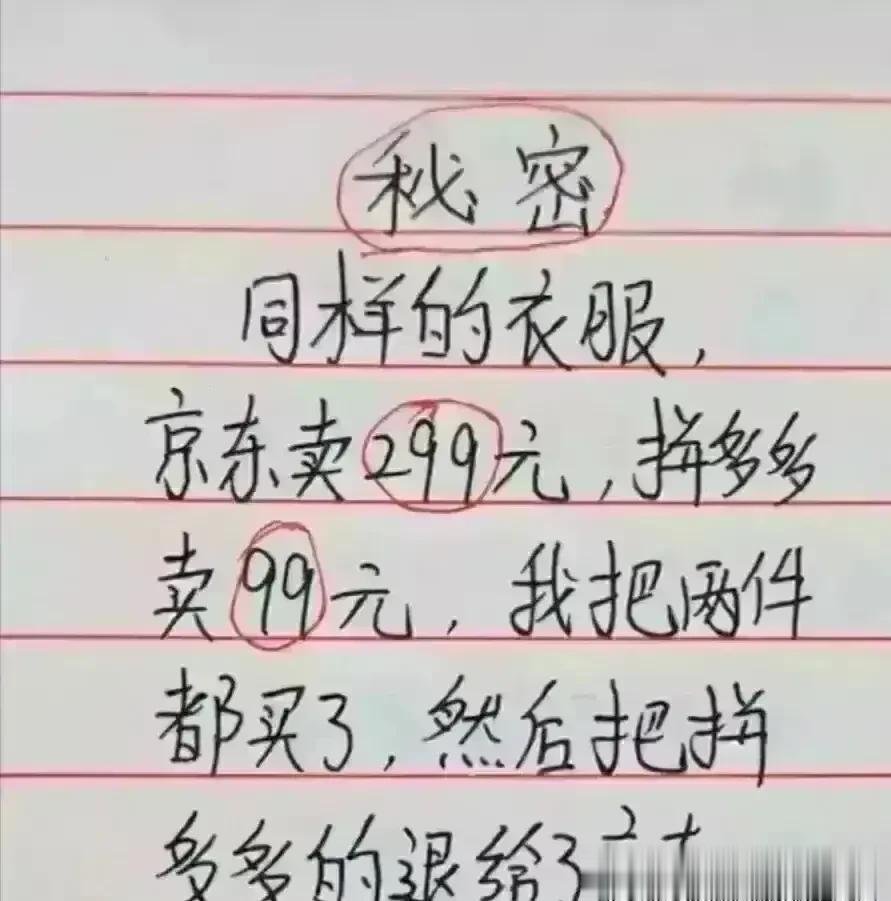 秘密
同样的衣服,
京东卖299元,拼多多
卖99元,我把两件
都买了,然后把拼
多多的退给了